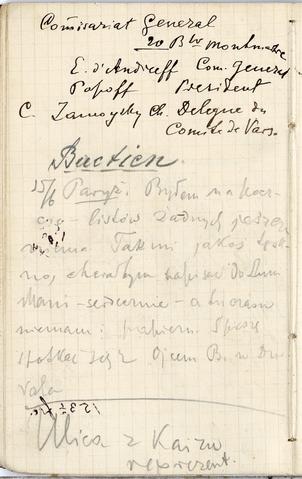 Comisariat General
20 Bd Montmartre
E. d'Andreff Com. General
Popoff President
C. Zamoysky Ch. Delegue du
Comité de Vars.
Bastien.
15/6 Paryż. Byłem na pocz-
cie - listów żadnych jeszcze
niema Tak mi jakoś
no, chciałbym napisać do
Mani - serdecznie - a tu czasu
niemam i papieru. Spieszę
spotkać się z Ojcem B. w Du-
vala
1 2 3
Ulica z Kairu
reprezent.